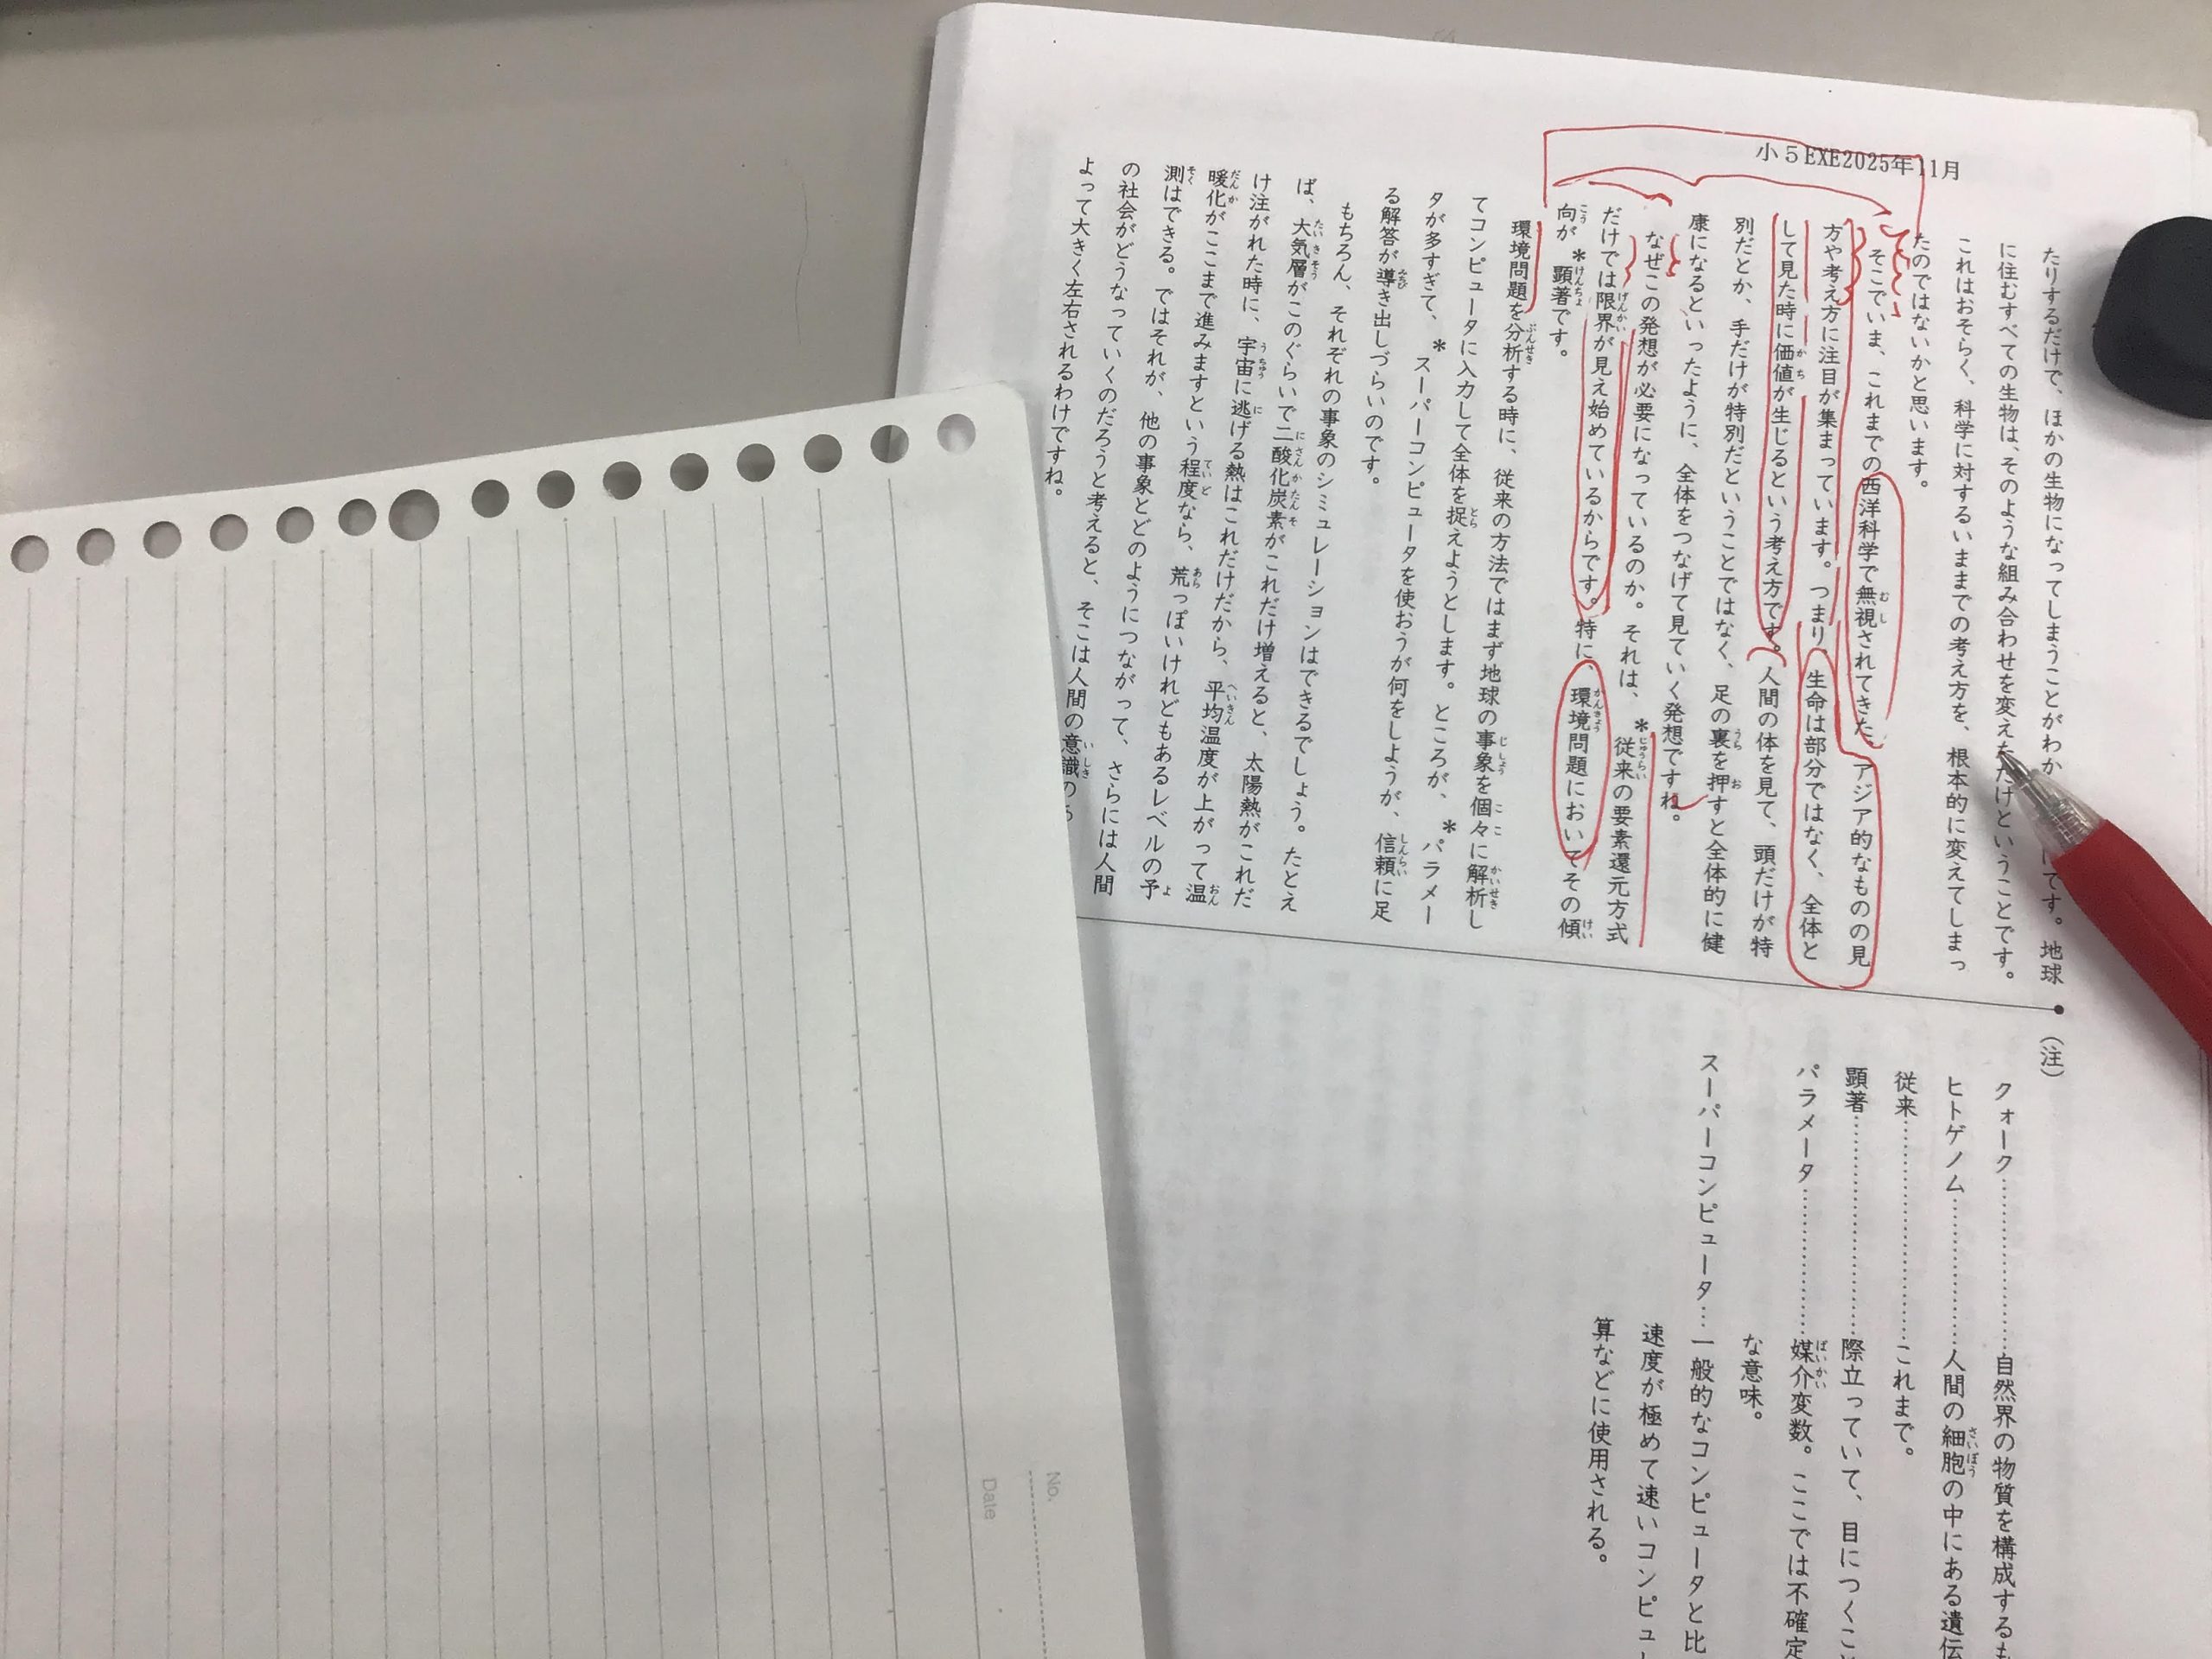 小５EXE2025年11月
たりするだけで、ほかの生物になってしまうことがわか
です。地球
に住むすべての生物は、そのような組み合わせを変えただけということです。
これはおそらく、科学に対するいままでの考え方を、根本的に変えてしまっ
たのではないかと思います。
そこでいま、これまでの西洋科学で無視されてきたアジア的なものの見
方や考え方に注目が集まっています。つまり、生命は部分ではなく、全体と
して見た時に価値が生じるという考え方です。人間の体を見て、頭だけが特
別だとか、手だけが特別だということではなく、足の裏を押すと全体的に健
康になるといったように、全体をつなげて見ていく発想ですね。
なぜこの発想が必要になっているのか。それは、＊従来の要素還元方式
だけでは限界が見え始めているからです。特に、環境問題においてその傾
向が＊顕著です。
環境問題を分析する時に、従来の方法ではまず地球の事象を個々に解析し
てコンピュータに入力して全体を捉えようとします。ところが、＊パラメー
タが多すぎて、＊スーパーコンピュータを使おうが何をしようが、信頼に足
る解答が導き出しづらいのです。
もちろん、それぞれの事象のシミュレーションはできるでしょう。たとえ
ば、大気層がこのぐらいで二酸化炭素がこれだけ増えると、太陽熱がこれだ
け注がれた時に、宇宙に逃げる熱はこれだけだから、平均温度が上がって温
暖化がここまで進みますという程度なら、荒っぽいけれどもあるレベルの予
測はできる。ではそれが、他の事象とどのようにつながって、さらには人間
の社会がどうなっていくのだろうと考えると、そこは人間の意識の
よって大きく左右されるわけですね。
（注）
クォーク……………自然界の物質を構成する
ヒトゲノム…………人間の細胞の中にある遺伝
従来…………………これまで。
顕著…………………際立っていて、目につくこ
パラメータ…………媒介変数。ここでは不確定
な意味。
スーパーコンピュータ…一般的なコンピュータと比
速度が極めて速いコンピュ
算などに使用される。
No.
Date